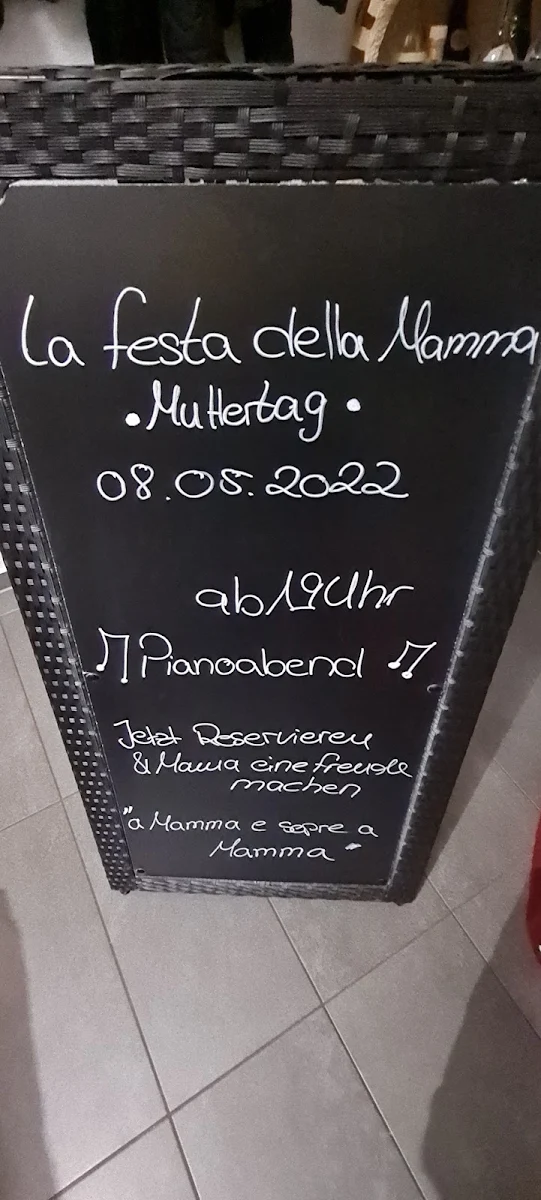 La festa della Mamma
• Muttertag •
08.05.2022
ab 19 Uhr
♫ Pianoabend ♫
Jetzt Reservieren
& Mama eine freude
machen
"a Mamma e sepre a
Mamma"